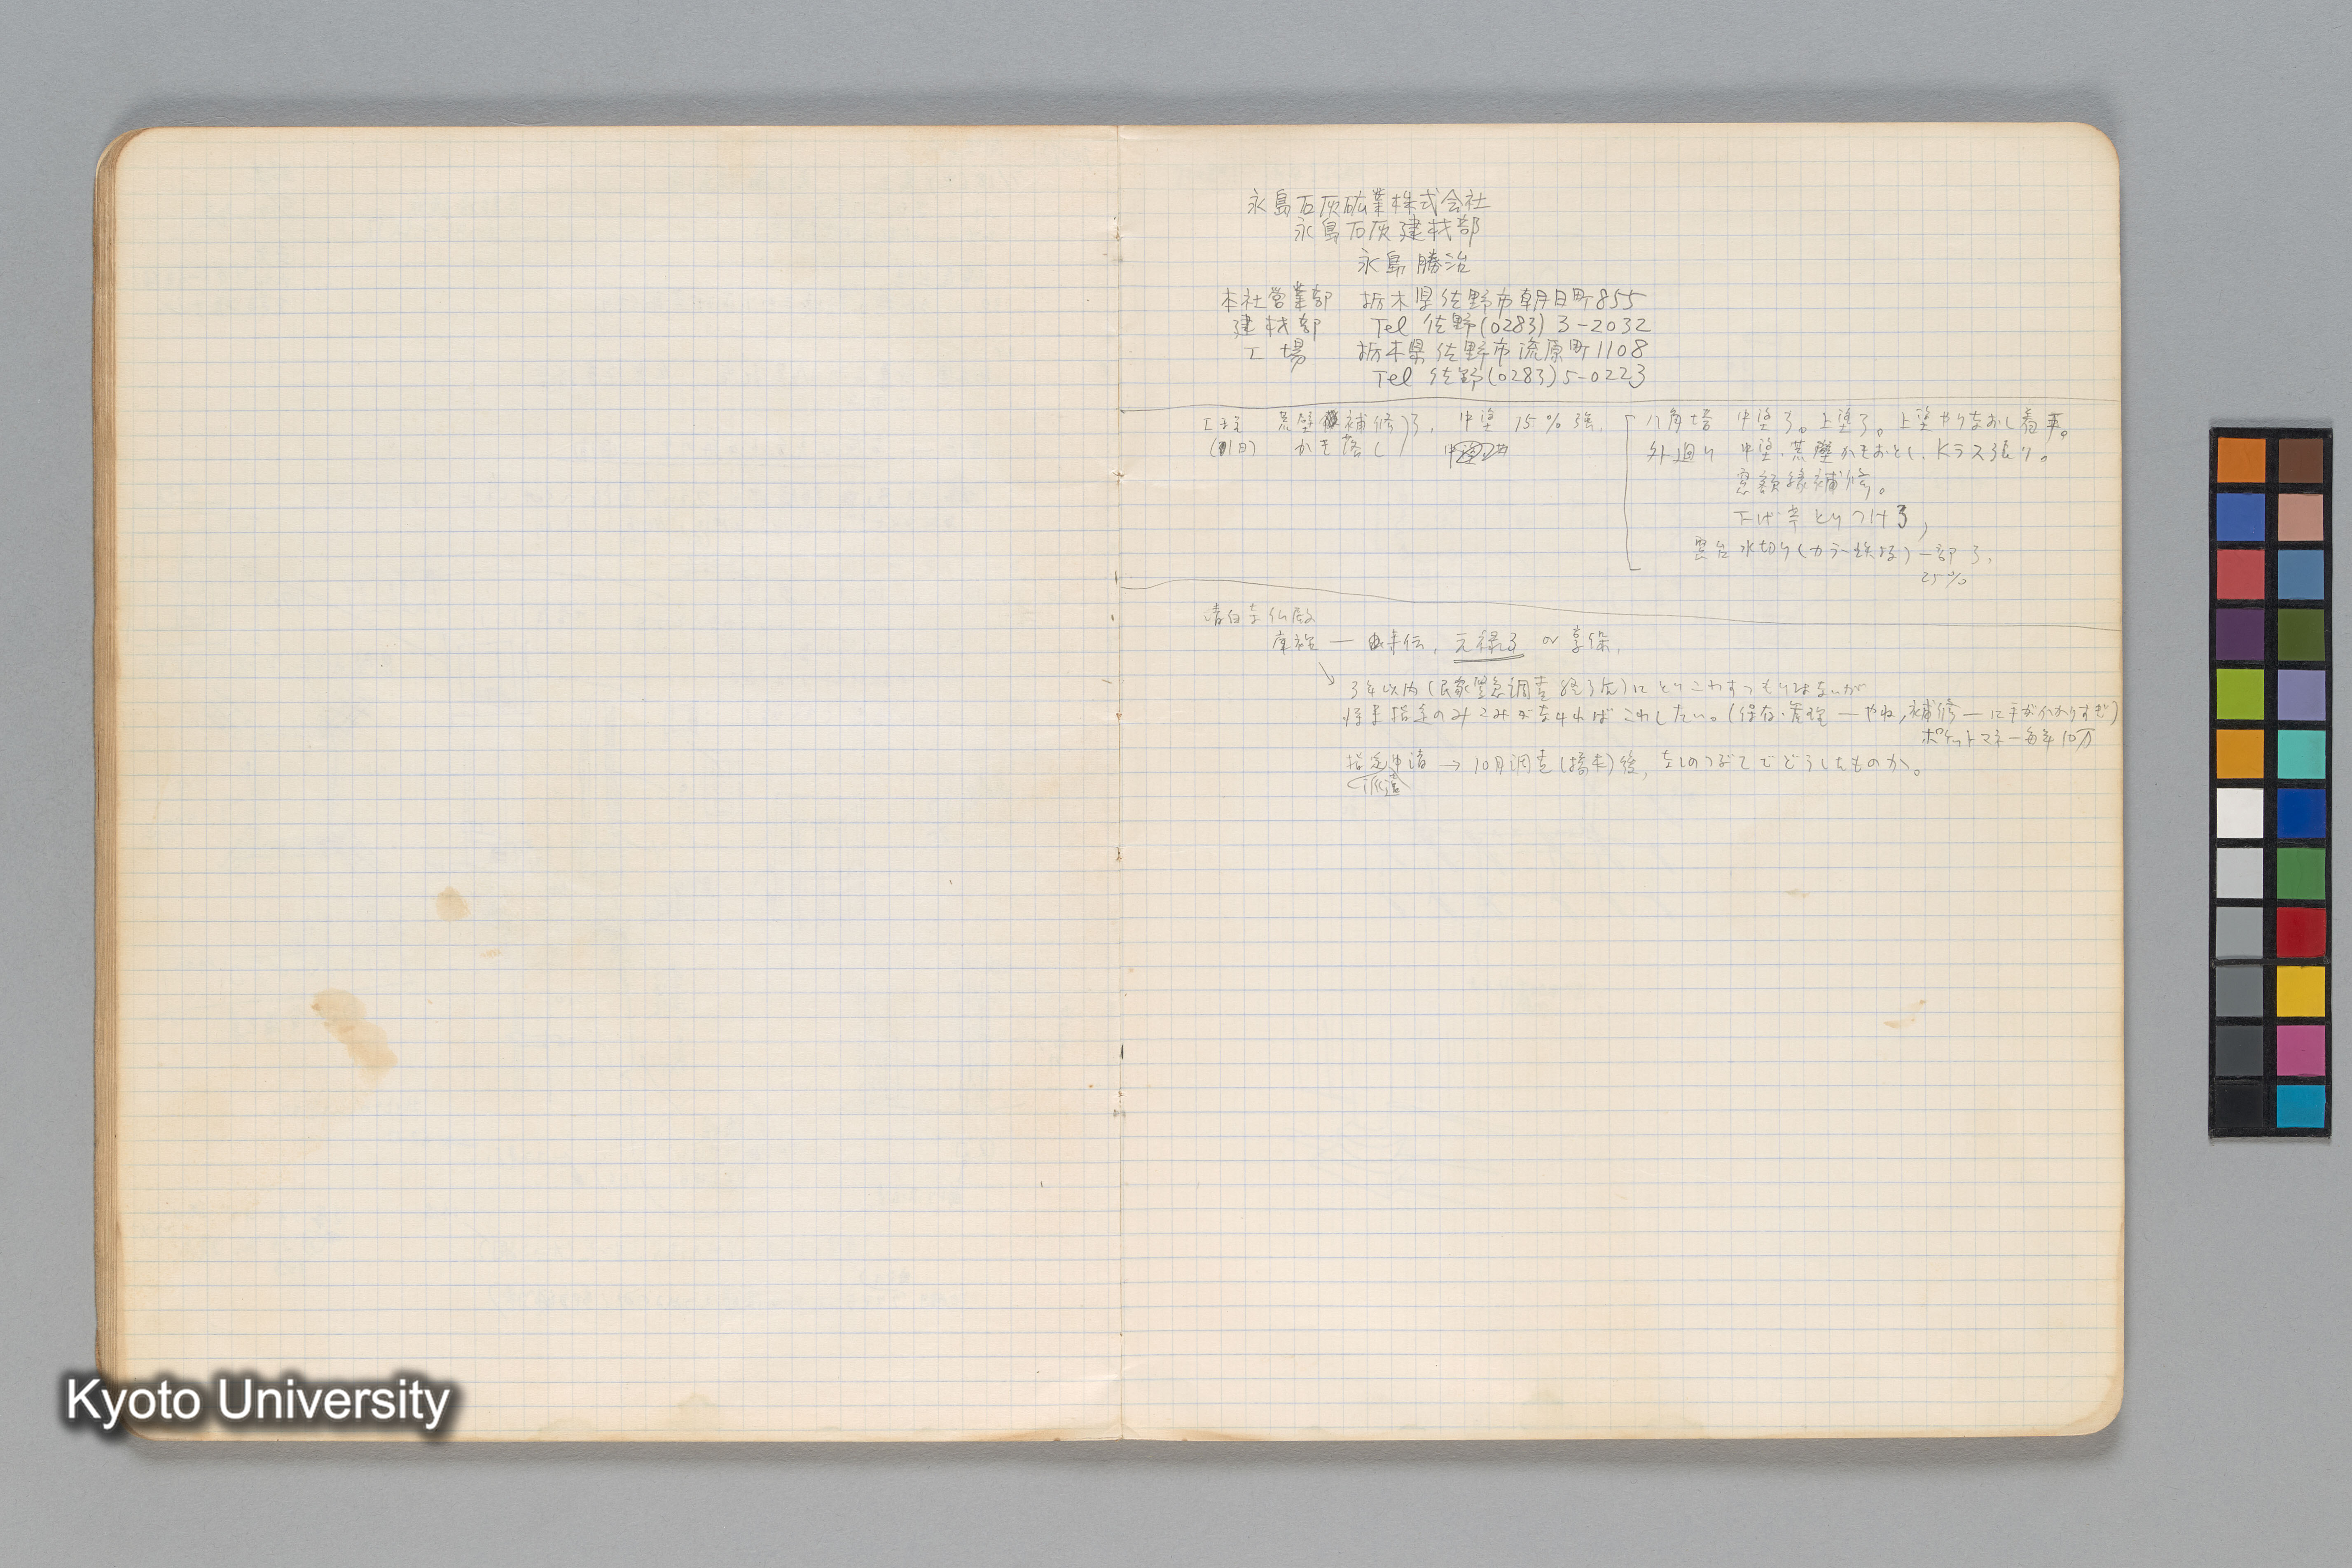 永島石灰砿業株式会社
永島石灰建材部
永島勝治
本社営業部 栃木県佐野市朝日町855
建材部 Tel 佐野(0283)3-2032
工場 栃木県佐野市流原町1108
Tel 佐野(0283)5-0223
荒壁補修了、中塗 15%強、
かき落し
八角塔 中塗了。上塗了。上塗やりなおし着手。
外廻り 中塗、荒壁かきおとし、Kラス張り。
窓額縁補修。
下げ とりつけ了、
窓台水切り(カラー鉄板)一部了、
25%
清白寺仏殿
庫裡 — 寺伝、元禄3 〜 享保、
3年以内(民家緊急調査終了后)にとりこわすつもりはないが
将来指定のみこみがなければこわしたい。(保存・管理—やね,補修—に手がかかりすぎ)
ポケットマネー毎年10万
指定申請 → 10月調査()後、なしのつぶてでどうしたものか。
派遣
Kyoto University